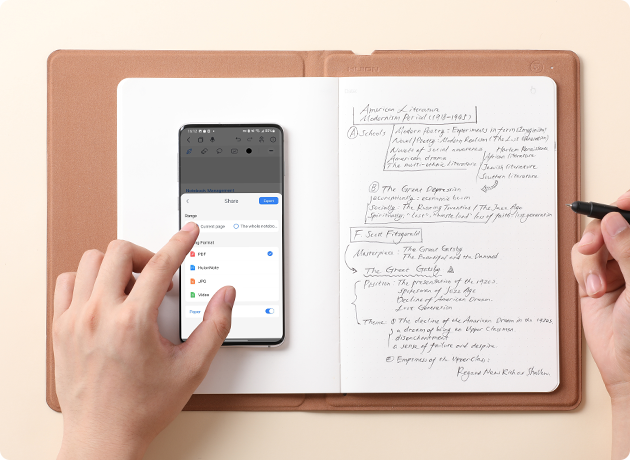 Share
Export
Range
Current page
The whole notebo...
PDF
HuionNote
JPG
Video
Paper
American Literature
Modernism Period (1918-1945)
A Schools
Modern Poetry: Experiments in form Imagism
Novel/Poetry: Modern Realism (The Lost Generation)
Novels of Social awareness
Harlem Renaissance
American drama
African literature
The multi-ethnic literature
Jewish literature
Southern literature
B The Great Depression
economically: economic
Socially: The Roaring Twenties / The Jazz Age
Spiritually: "lost" "waste land" loss of faith-lost generation
F. Scott Fitzgerald
Masterpieces: The Great Gatsby
The Beautiful and the Damned
The Great Gatsby
Position: The presentation of the 1920s.
Spokesman of Jazz Age
Decline of American Dream.
Lost Generation
Theme: ① The decline of the American Dream in the 1920s
a dream of being an Upper Classmen
disenchantment
a sense of failure and despire.
② Emptiness of the Upper Class: